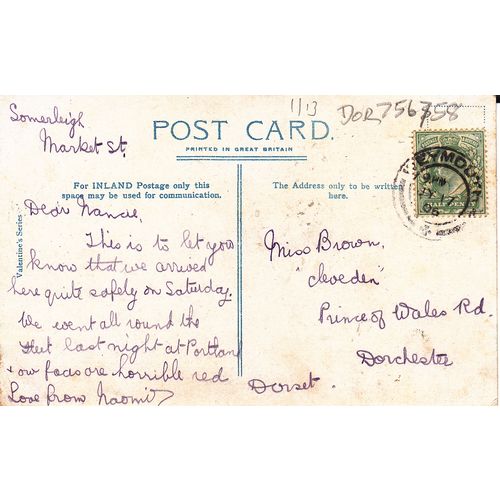 Somerleigh
Market St.
11/13
DOR 756358
POST CARD.
PRINTED IN GREAT BRITAIN
For INLAND Postage only this
space may be used for communication.
The Address only to be written
here.
Valentine's Series
WEYMOUTH
HALFPENNY
Dear Nancie,
This is to let you
know that we arrived
here quite safely on Saturday.
We went all round the
fleet last night at Portland
+ our faces are horrible red
Love from Naomi
Miss Brown,
"Cleveden"
Prince of Wales Rd.
Dorchester
Dorset.